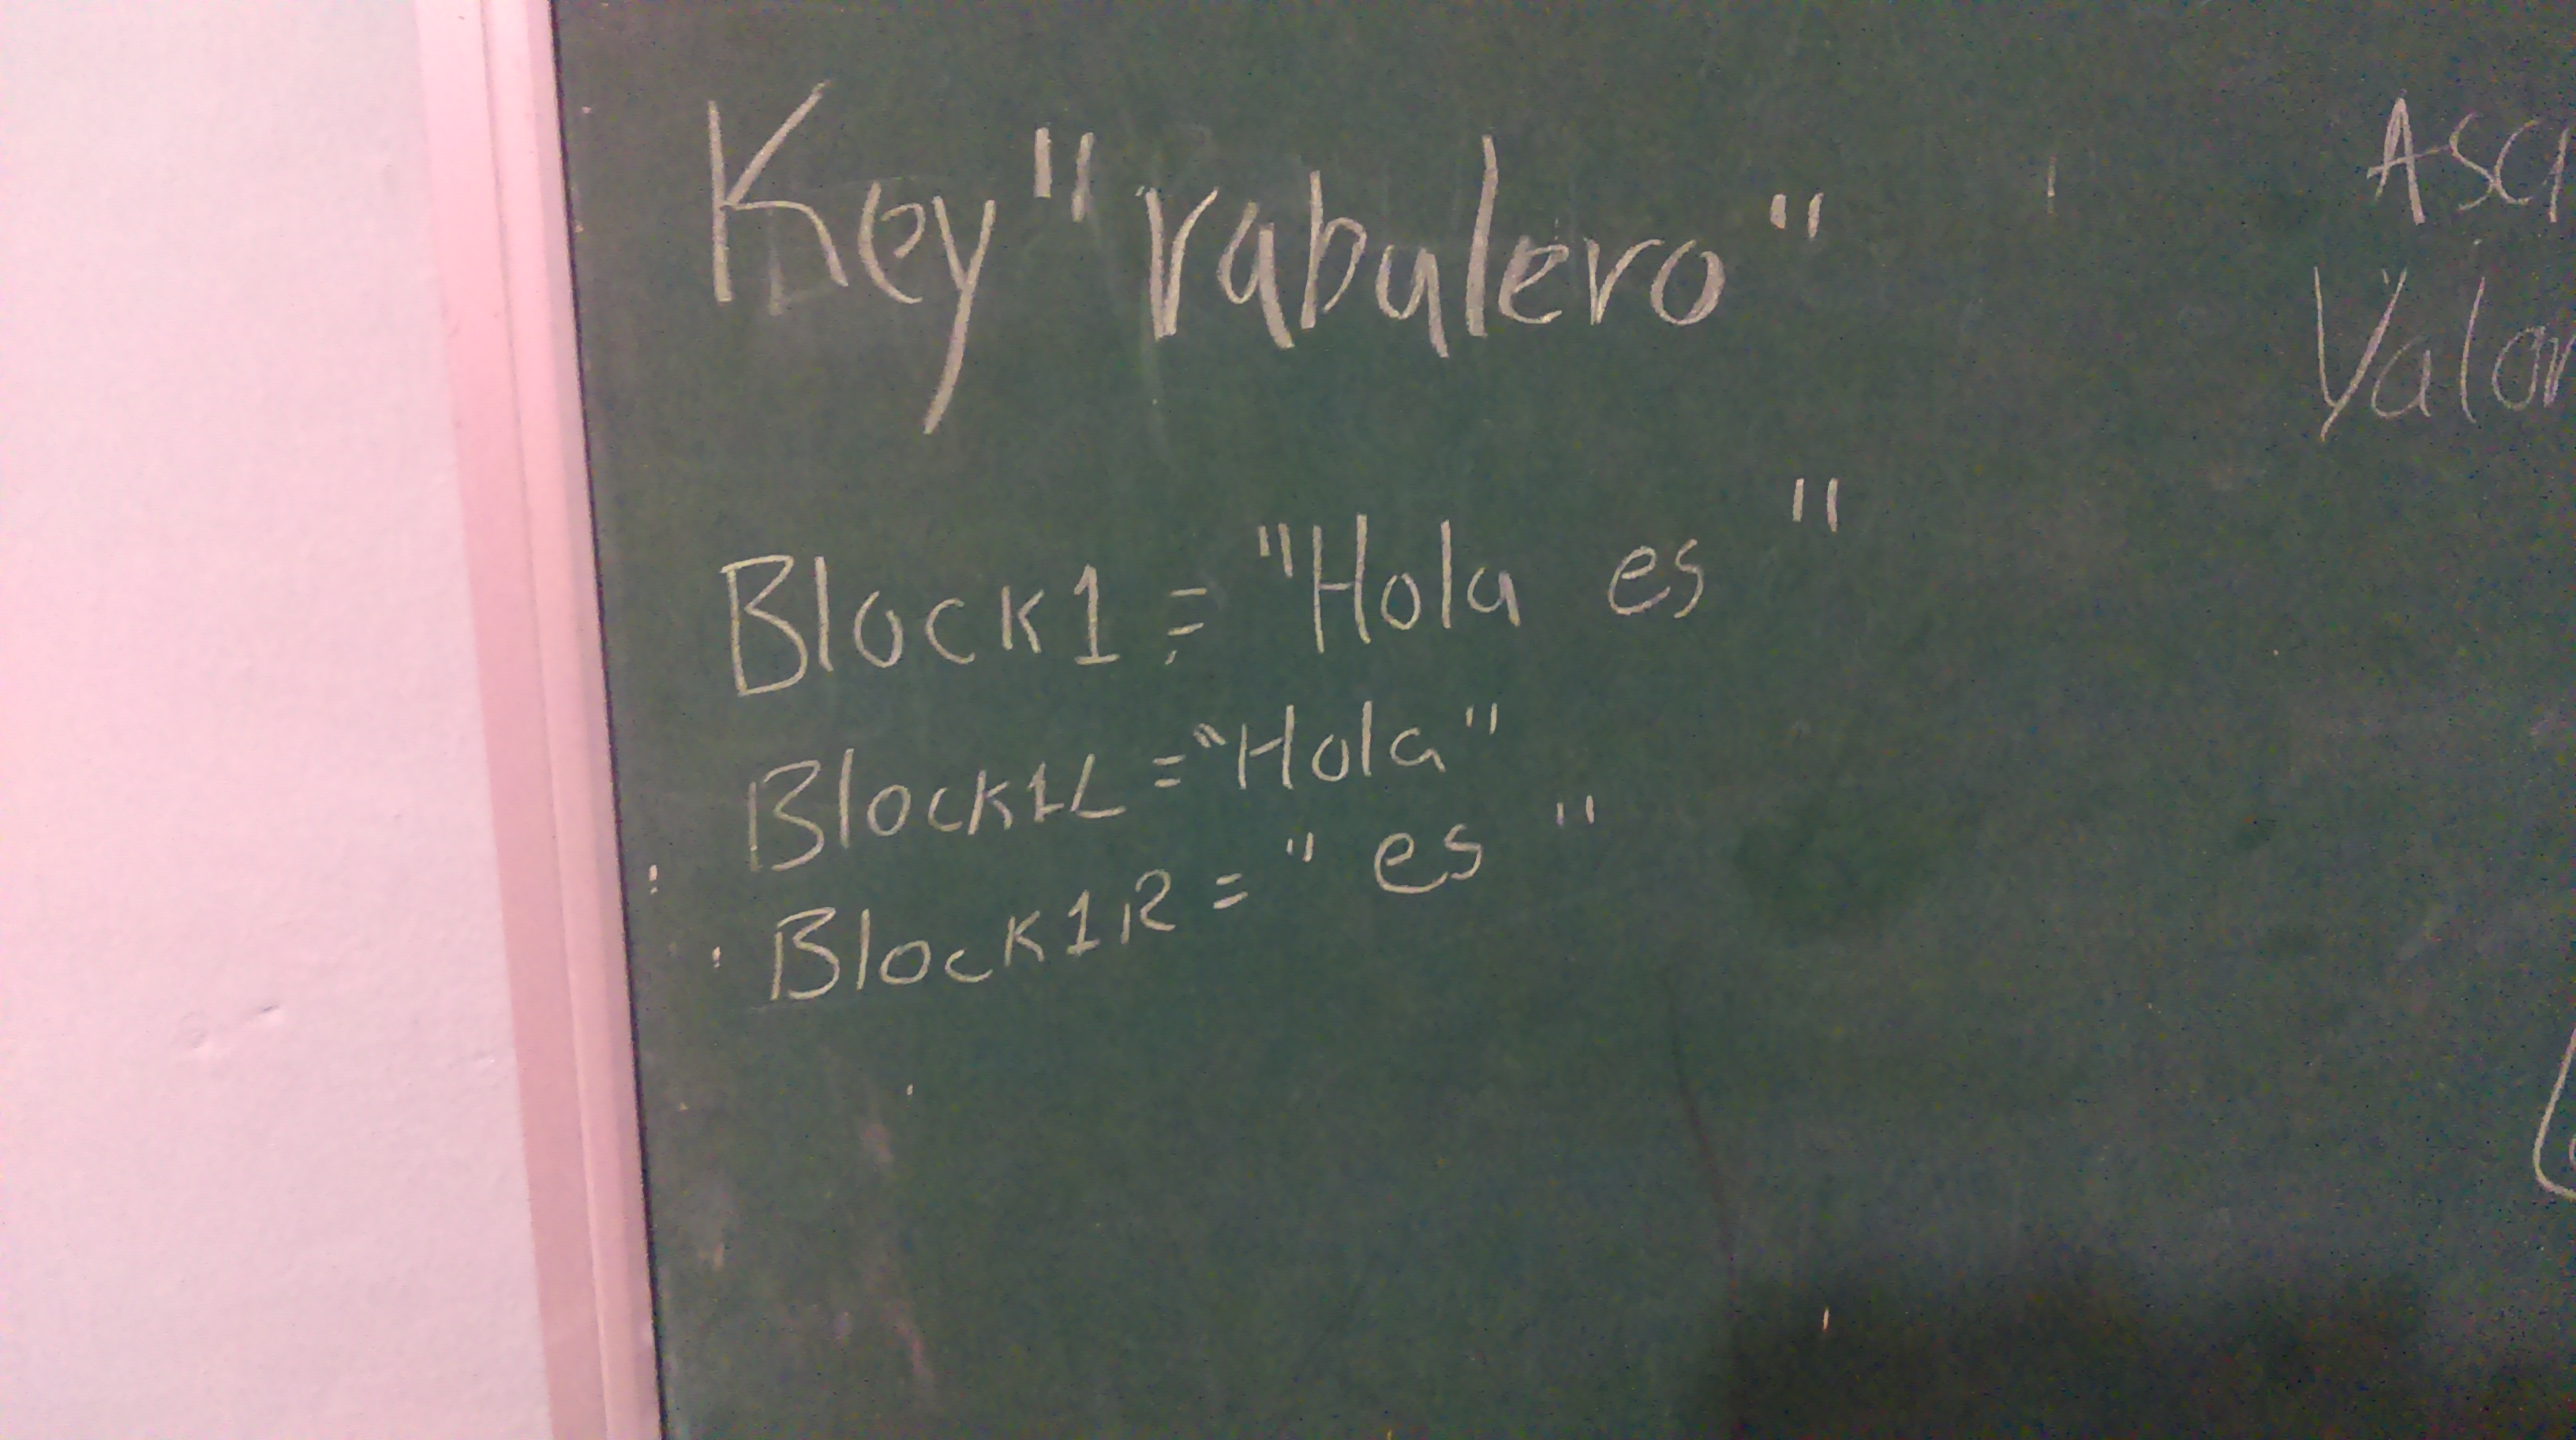 Key "rabulero"
Block1 = "Hola es "
Block1L = "Hola"
Block1R = " es "